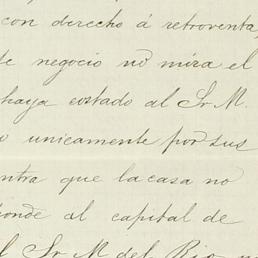 con derecho á retroventa,
te negocio no mira el
haya costado al Sr M.
o unicamente por sus
ntra que la casa no
ponde al capital de
l Sr M. del Rio